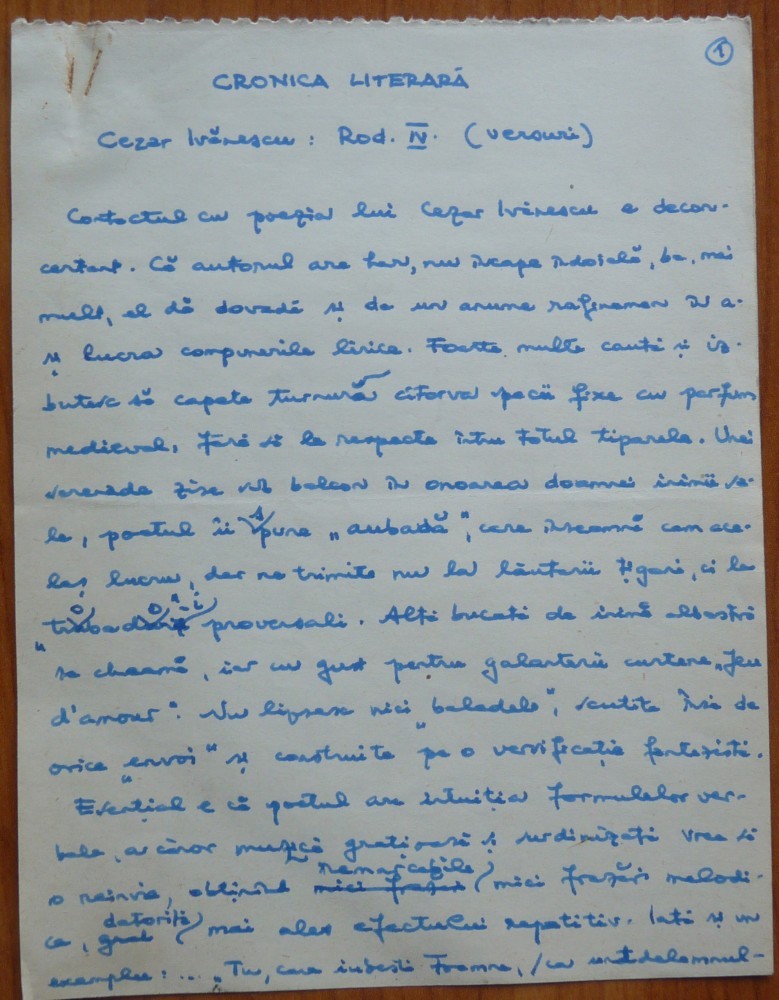 1
CRONICA LITERARĂ
Cezar Ivănescu : Rod. IV. (versuri)
Contactul cu poezia lui Cezar Ivănescu e decon-
certant. Că autorul are har, nu încape îndoială, ba, mai
mult, el dă dovadă și de un anume rafinament în a-
și lucra compunerile lirice. Foarte multe caută și iz-
butesc să capete turnură cîtorva specii fixe cu parfum
medieval, fără să le respecte întru totul tiparele. Unei
serenade zise sub balcon în onoarea doamnei inimii sa-
le, poetul îi spune „aubadă", care înseamnă cam ace-
laș lucru, dar ne trimite nu la lăutarii țigani, ci la
provensali. Altă bucată de inimă albastră
se cheamă, iar cu gust pentru galanterii curtene „Jeu
d'amour". Nu lipsesc nici „baladele", scutite însă de
orice „envoi" și construite pe o versificație fantezistă.
Esențial e că poetul are intuiția formulelor ver-
bale, a căror muzică grațioasă și surdinizată vrea să
remarcabile
o reînvie, obținînd mici frazări melodi-
datorită
ce, grad mai ales efectului repetitiv. Iată și un
exemplu : ... „Tu, care iubești Toamna, /ca undelemnul-